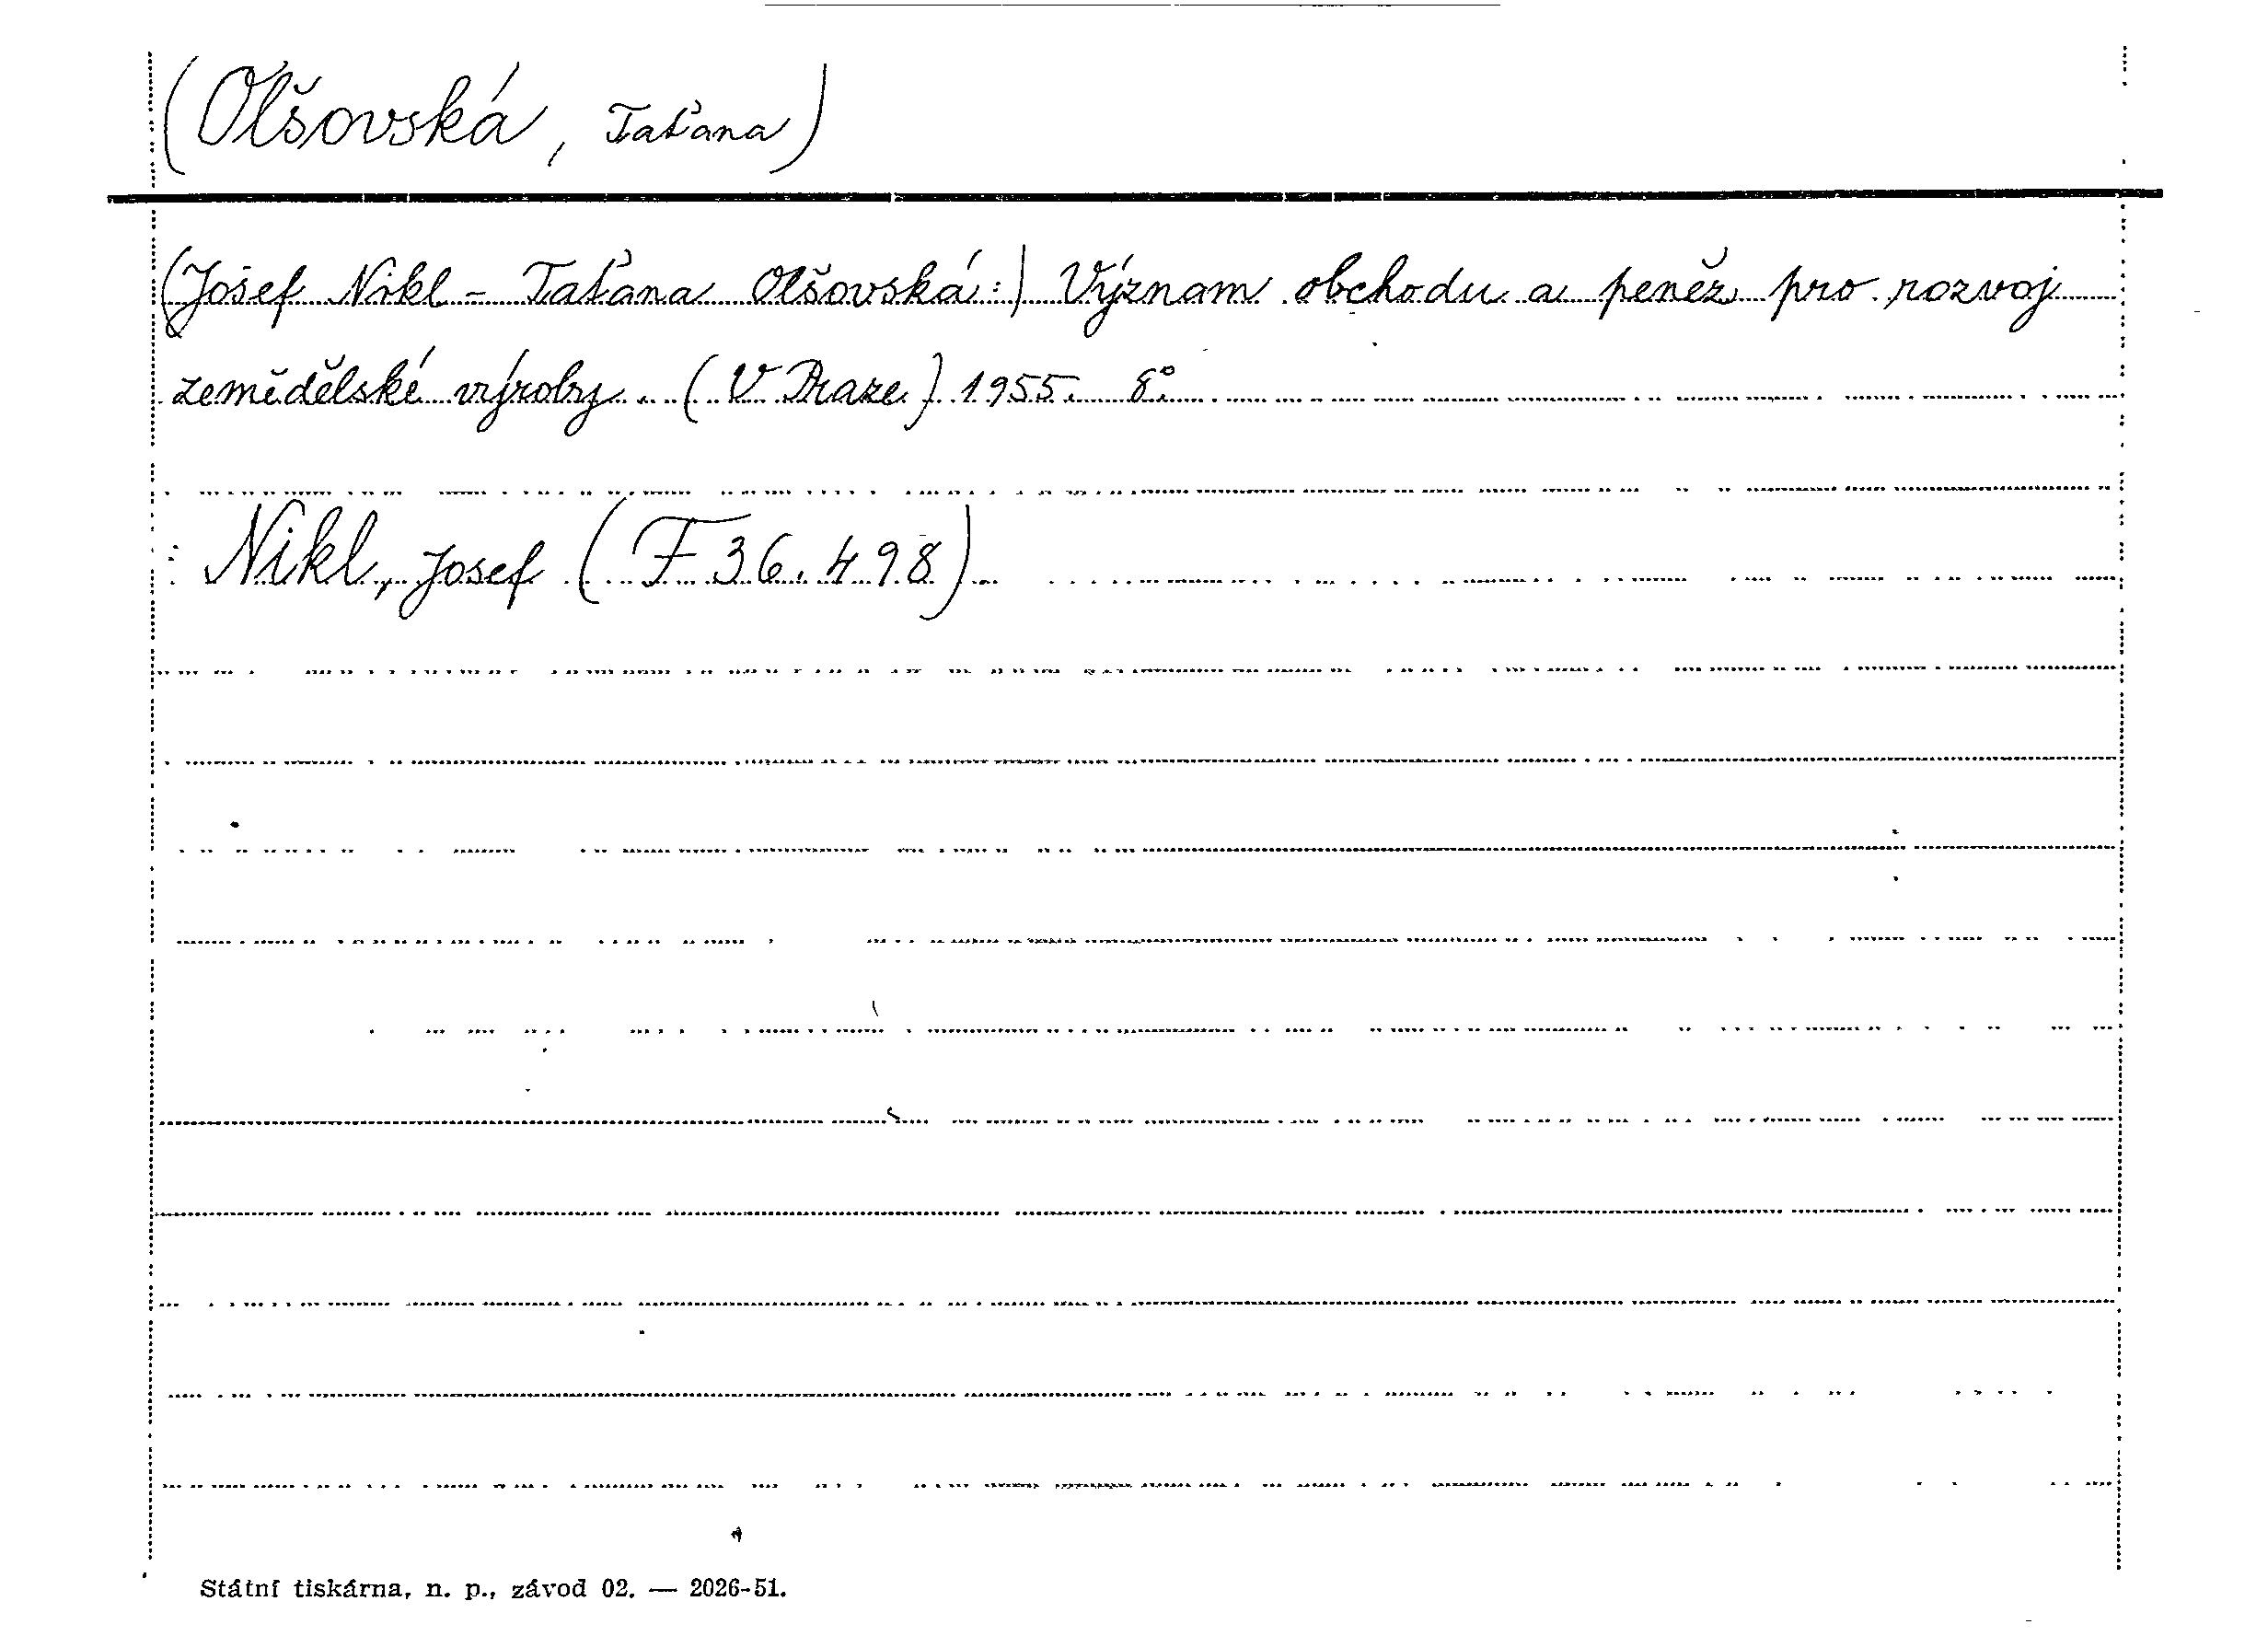 (Olšovská, Taťana)
(Josef Nikl - Taťana Olšovská:) Význam obchodu a peněz pro rozvoj
zemědělské výroby. (V Praze) 1955. 8°.
: Nikl, Josef (F 36.498)
Státní tiskárna, n. p., závod 02. — 2026-51.